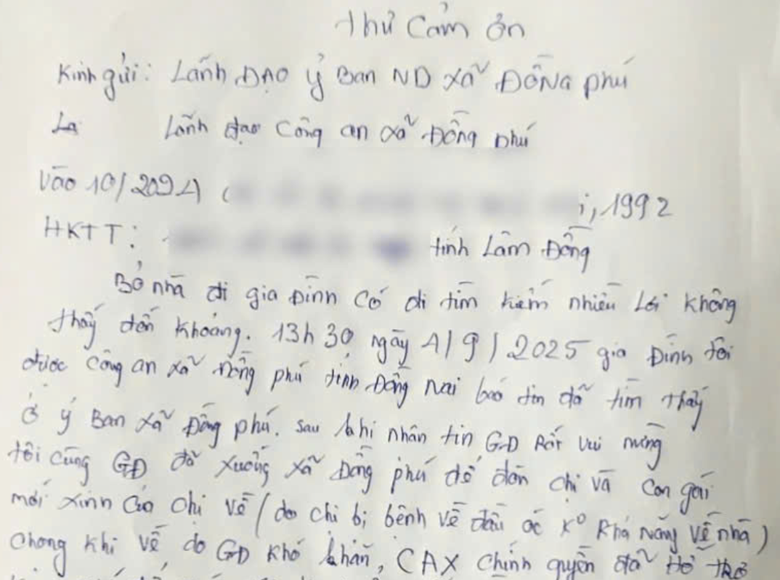 Thư Cảm ơn
Kính gửi: Lãnh ĐẠO ỷ Ban ND xã ĐỒNG phú
Lãnh đạo Công an xã Đồng phú
Vào 10/2024 (
i, 1992
HKTT: tỉnh Lâm Đồng
Bỏ nhà đi gia Đình có đi tìm kiếm nhiều Lới không
thấy đến khoảng. 13h 30 ngày 4/9/2025 gia Đình tôi
được công an xã Đồng phú tỉnh Đồng Nai báo tin đã tìm thấy
ở ỷ Ban xã Đồng phú. sau khi nhận tin GĐ Rất vui mừng
tôi cùng GĐ đã xuống xã Đồng phú để đón chị và con gái
mới xinh của chị về (do chị bị bệnh về đầu óc K° Khả Năng về nhà)
chong khi về do GĐ khó khăn, CAX chính quyền đã Hỗ trợ